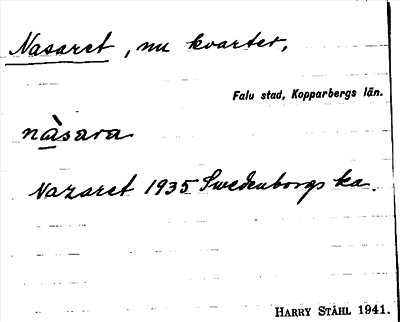 Nasaret, nu kvarter,
Falu stad, Kopparbergs län.
nàsara
Nazaret 1935 Swedenborgs ka.
HARRY STÅHL 1941.